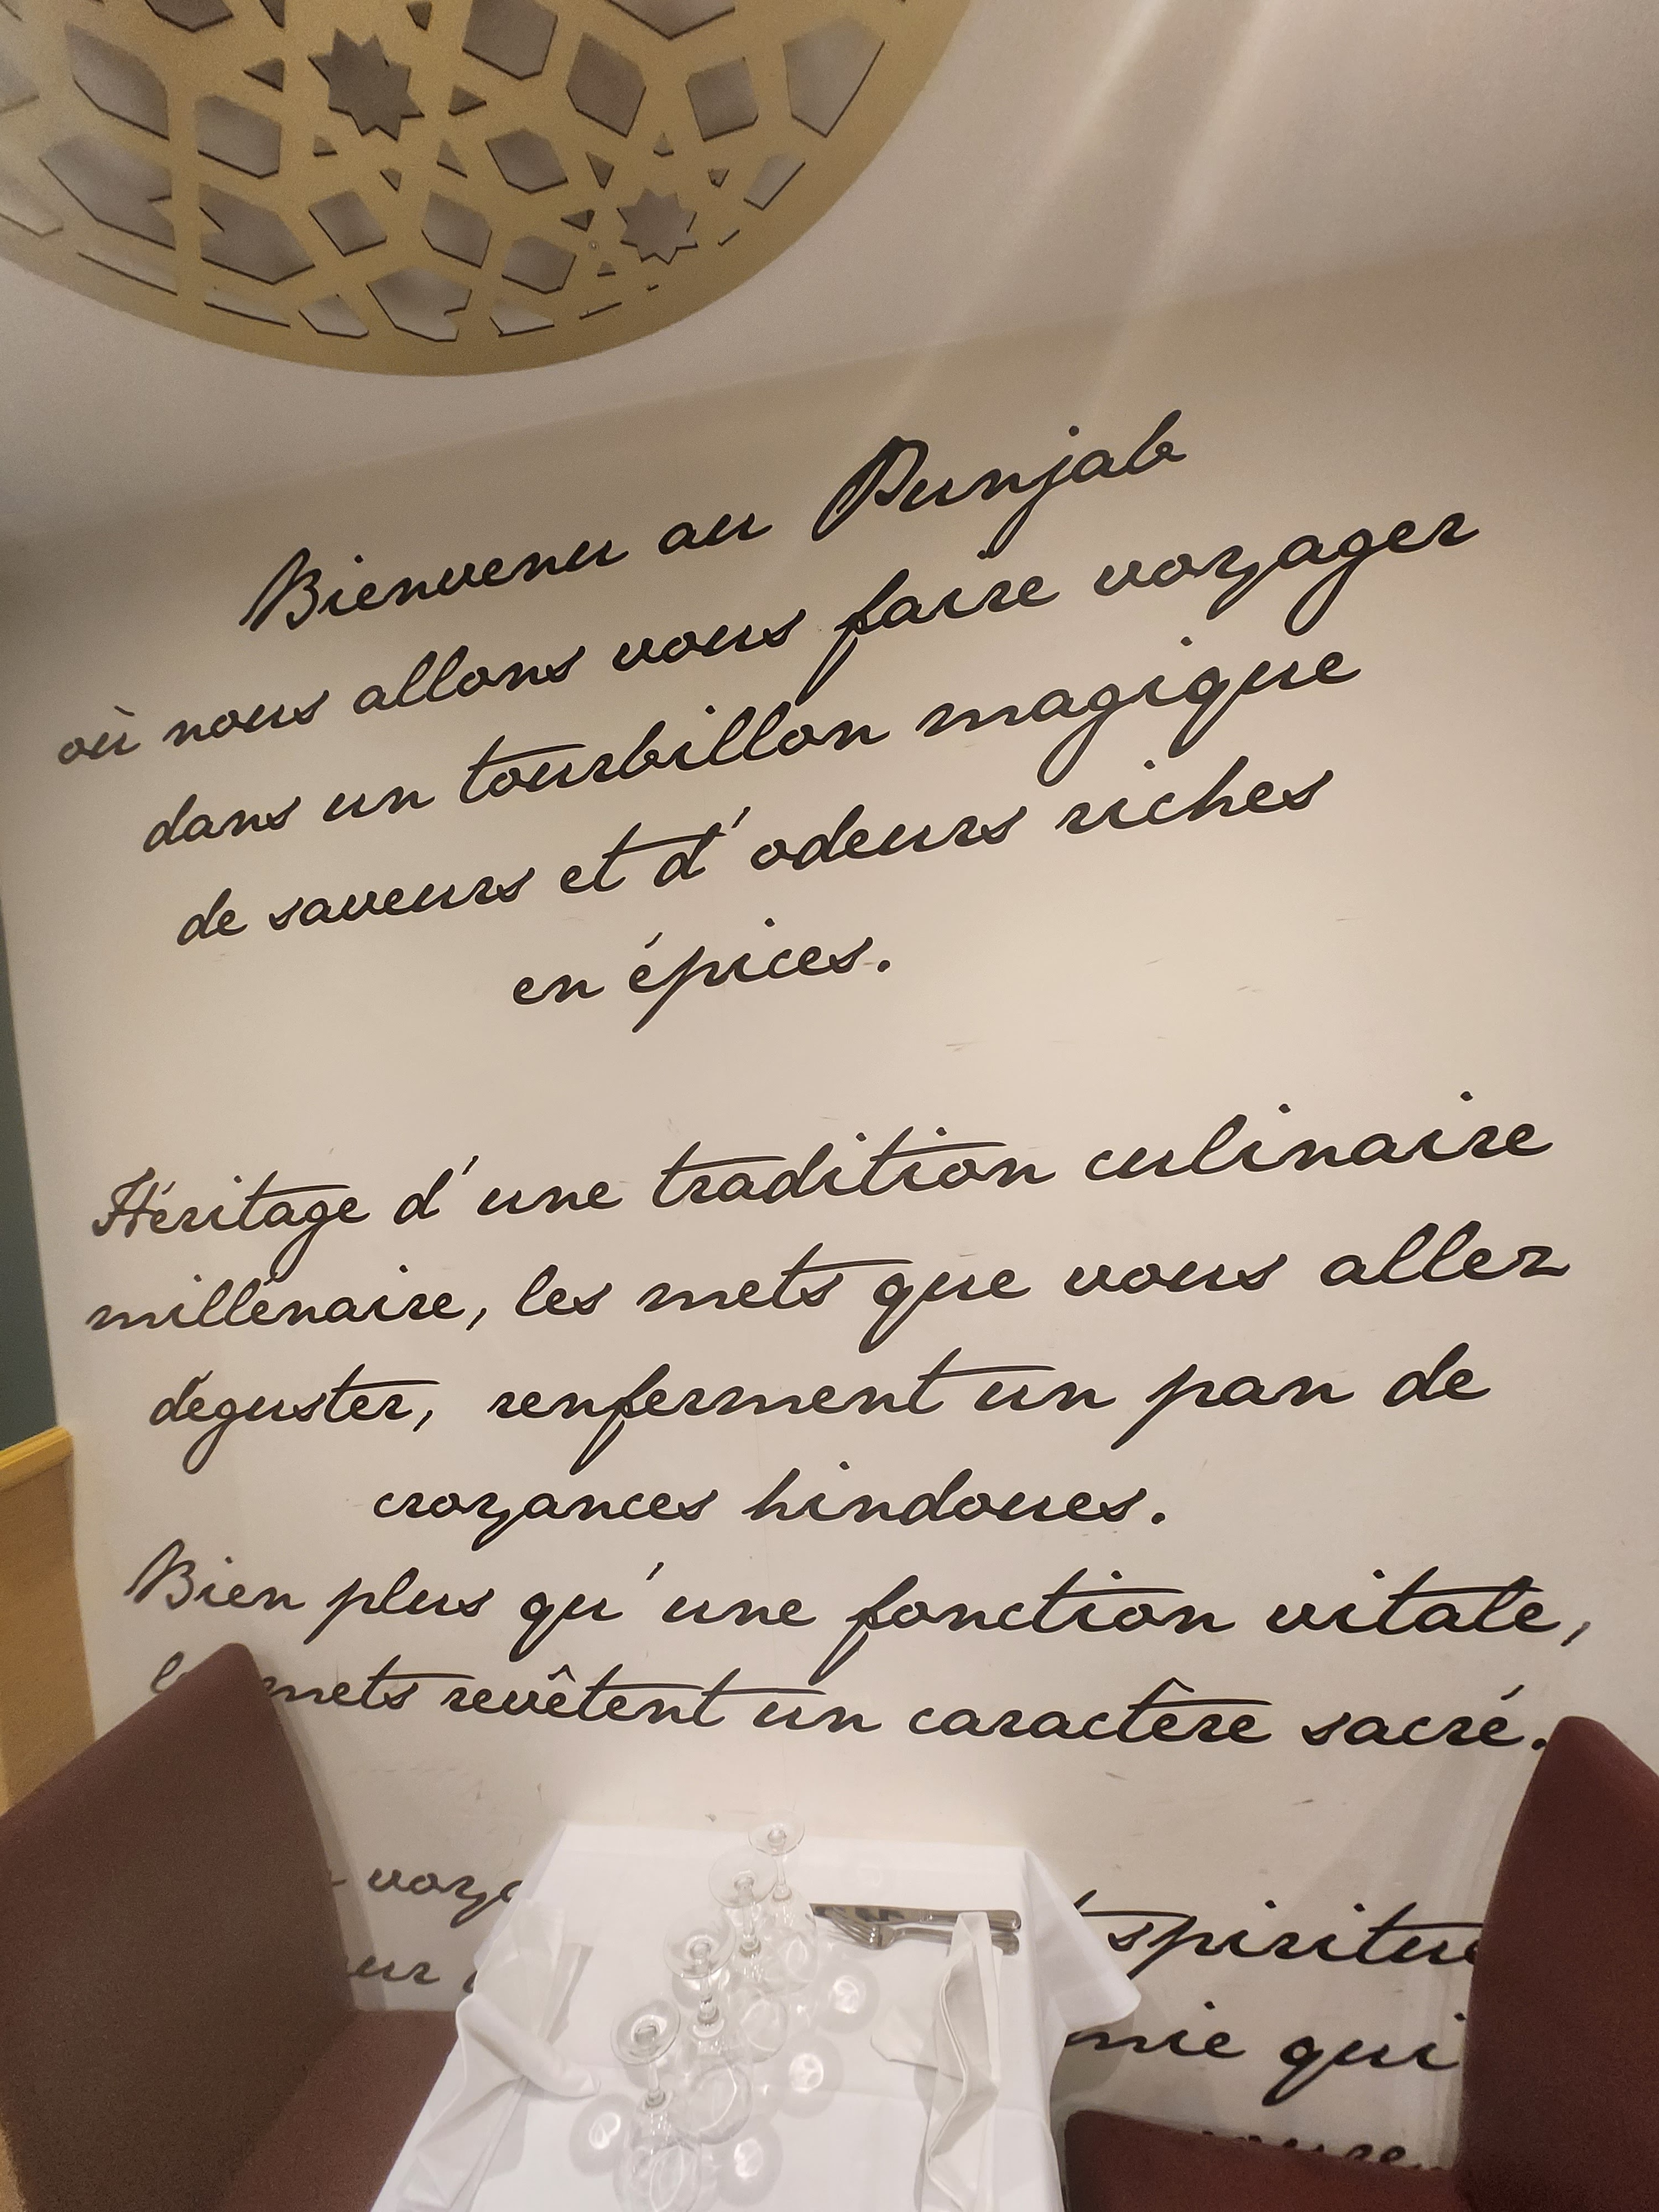 Bienvenu au Punjab
où nous allons vous faire voyager
dans un tourbillon magique
de saveurs et d'odeurs riches
en épices.
Héritage d'une tradition culinaire
millénaire, les mets que vous allez
déguster, renferment un pan de
croyances hindoues.
Bien plus qu'une fonction vitale,
mets revêtent un caractère sacré.
qui